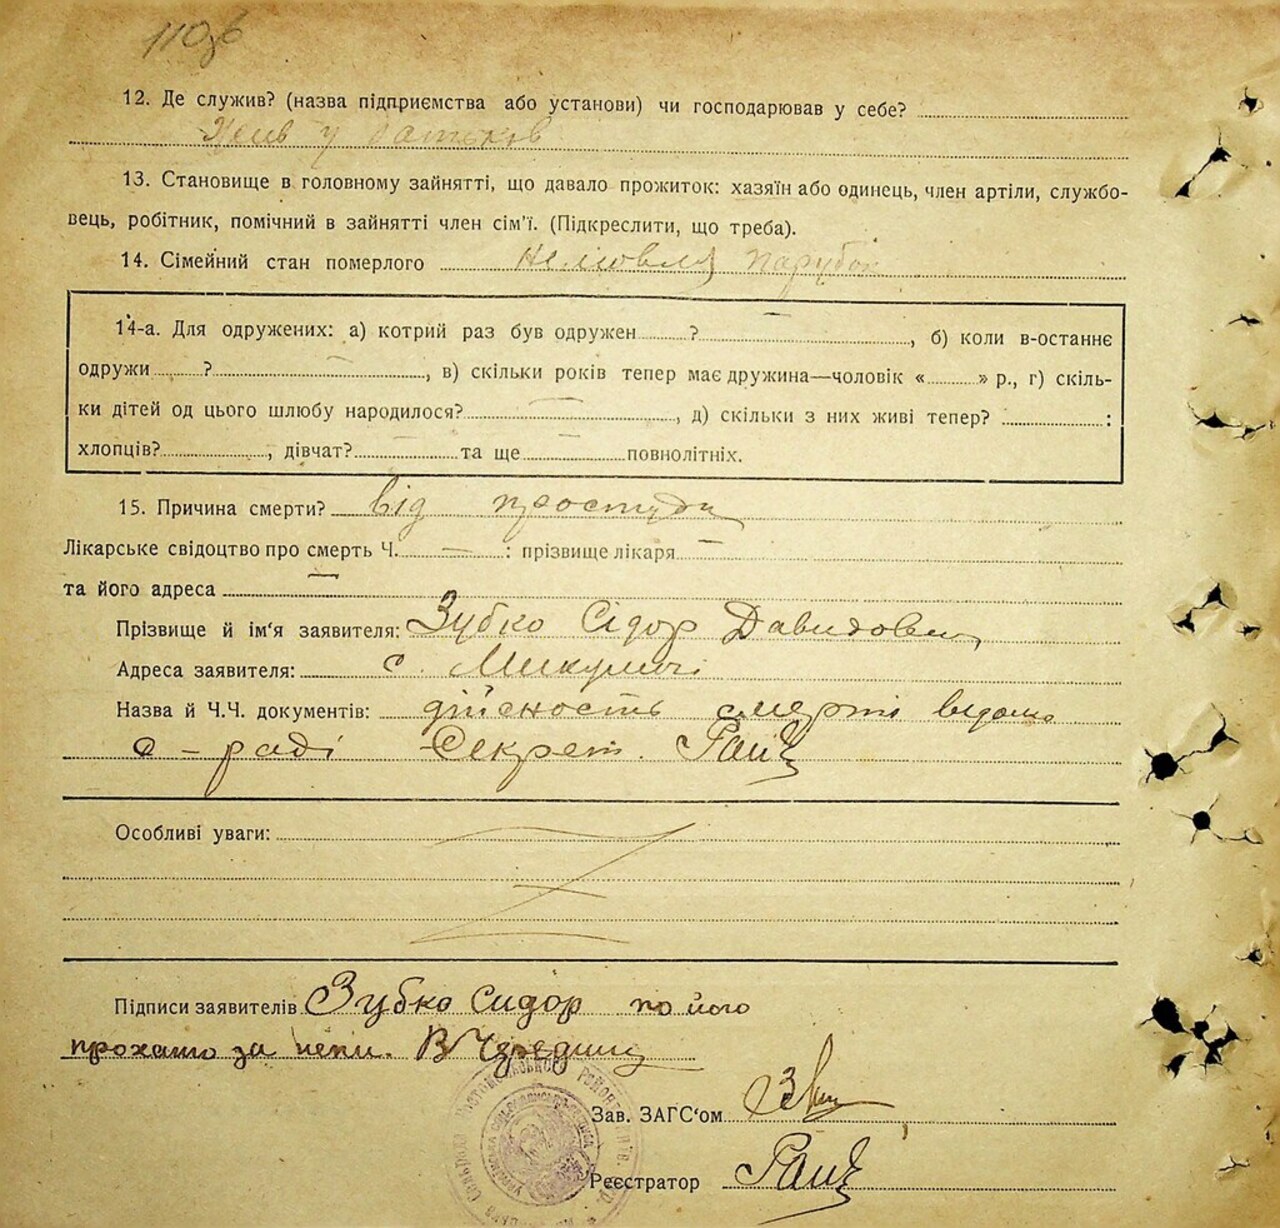 12. Де служив? (назва підприємства або установи) чи господарював у себе?
Жив у батьків
13. Становище в головному зайнятті, що давало прожиток: хазяїн або одинець, член артіли, службо-
вець, робітник, помічний в зайнятті член сім'ї. (Підкреслити, що треба).
14. Сімейний стан померлого парубок
14-а. Для одружених: а) котрий раз був одружен ? , б) коли в-останнє
одружи ? , в) скільки років тепер має дружина—чоловік « » р., г) скіль-
ки дітей од цього шлюбу народилося? , д) скільки з них живі тепер? :
хлопців? , дівчат? та ще повнолітніх.
15. Причина смерти? від простуди
Лікарське свідоцтво про смерть Ч. — : прізвище лікаря —
та його адреса —
Прізвище й ім'я заявителя: Зубко Сідор Давидович
Адреса заявителя: с. Микуличі
Назва й Ч.Ч. документів: дійсность смерті відома
с-раді Секрет.
Особливі уваги:
Підписи заявителів Зубко Сидор по його
прохапю за непи.
Зав. ЗАГС'ом
Реєстратор